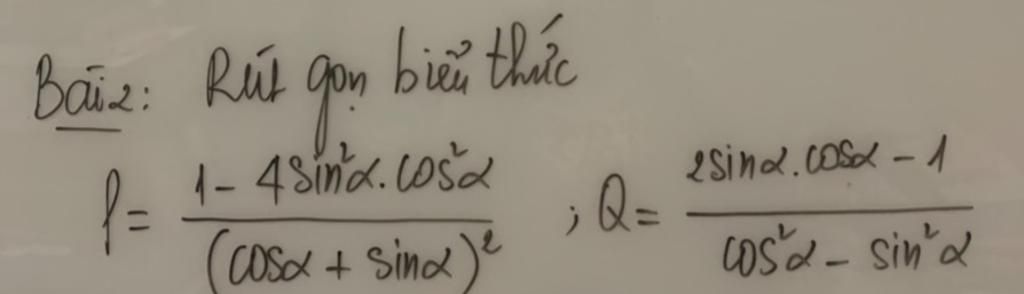 Bài 2: Rút gọn biểu thức
P = \frac{1 - 4sin²α.cos²α}{(cosα + sinα)²} ; Q = \frac{2sinα.cosα - 1}{cos²α - sin²α}